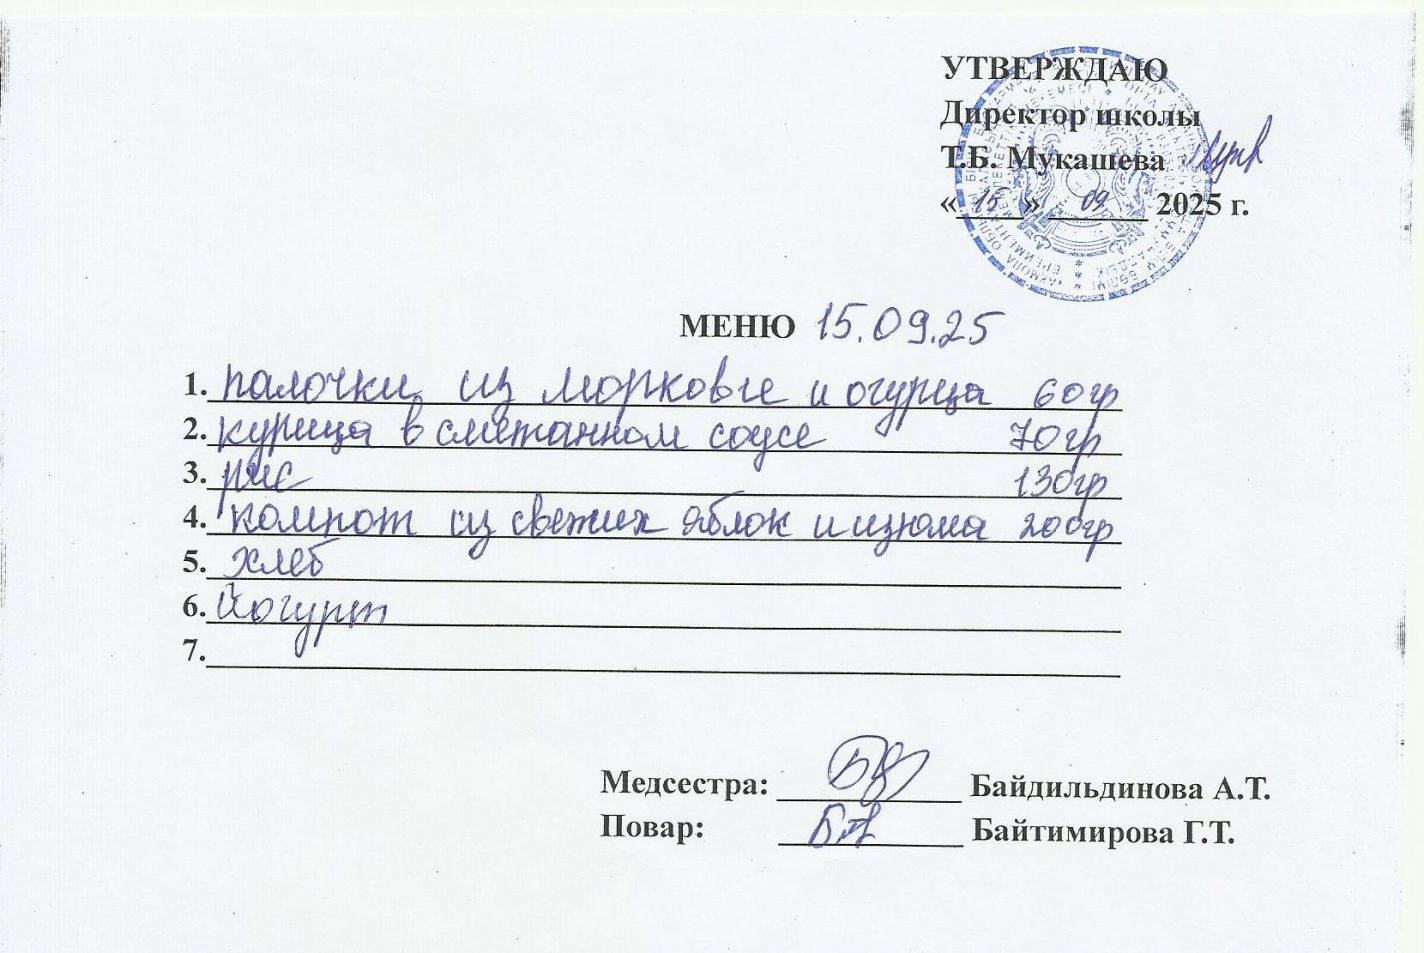 УТВЕРЖДАЮ
Директор школы
Т.Б. Мукашева
«15» 09 2025 г.
МЕНЮ 15.09.25
1. палочки из моркови и огурца 60гр
2. курица в сметанном соусе 70гр
3. рис 130гр
4. компот из свежих яблок и изюма 200гр
5. хлеб
6. Йогурт
7.
Медсестра: Байдильдинова А.Т.
Повар: Байтимирова Г.Т.